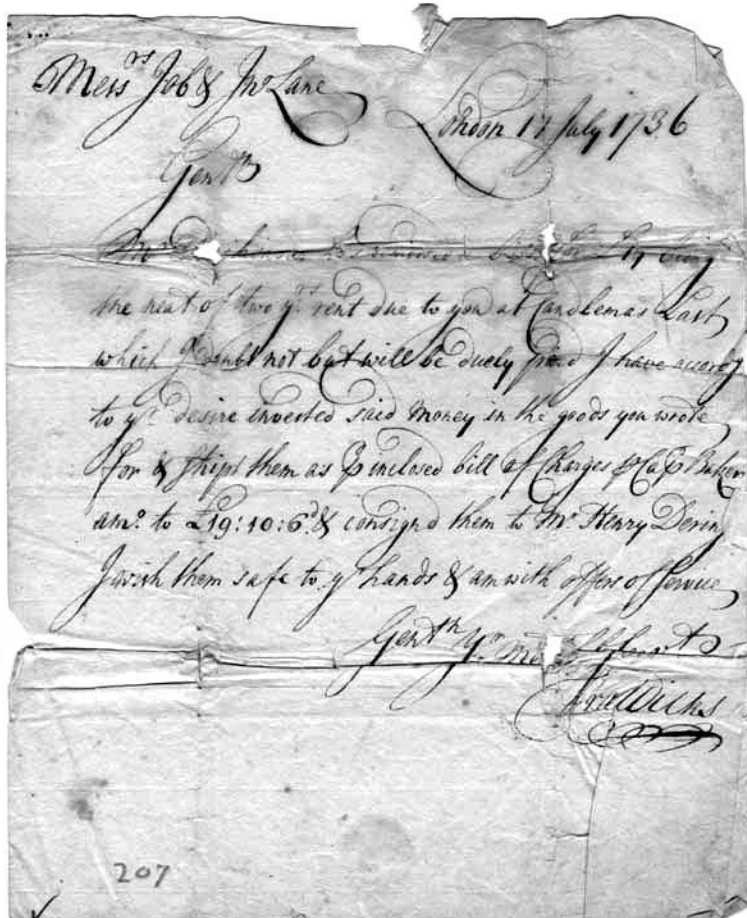 Meis.rs Job & Jn.o Lane
London 17 July 1736
Gent.n
M.r being
the neat of two y.rs rent due to you at Candlemas Last
which I doubt not but will be duely pie.d I have accord.g
to y.r desire invested said Money in the goods you wrote
for & shipt them as inclosed bill of Charges Baker
am.o to £19:10:6.d & consign'd them to M.r Henry Dering
I wish them safe to y.r hands & am with offers of Service
Gent.n Y.r
Wicks
207